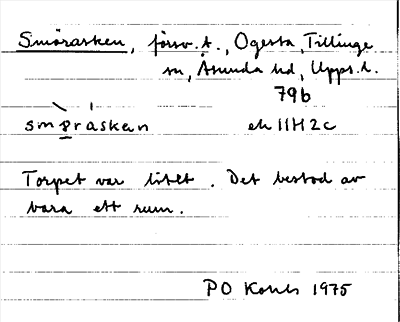 Smörasken, försv. t., Ogesta, Tillinge
sn, Åsunda hd, Upps. l.
79b
smǿråskan ek 11H2c
Torpet var litet. Det bestod av
bara ett rum.
PO 1975